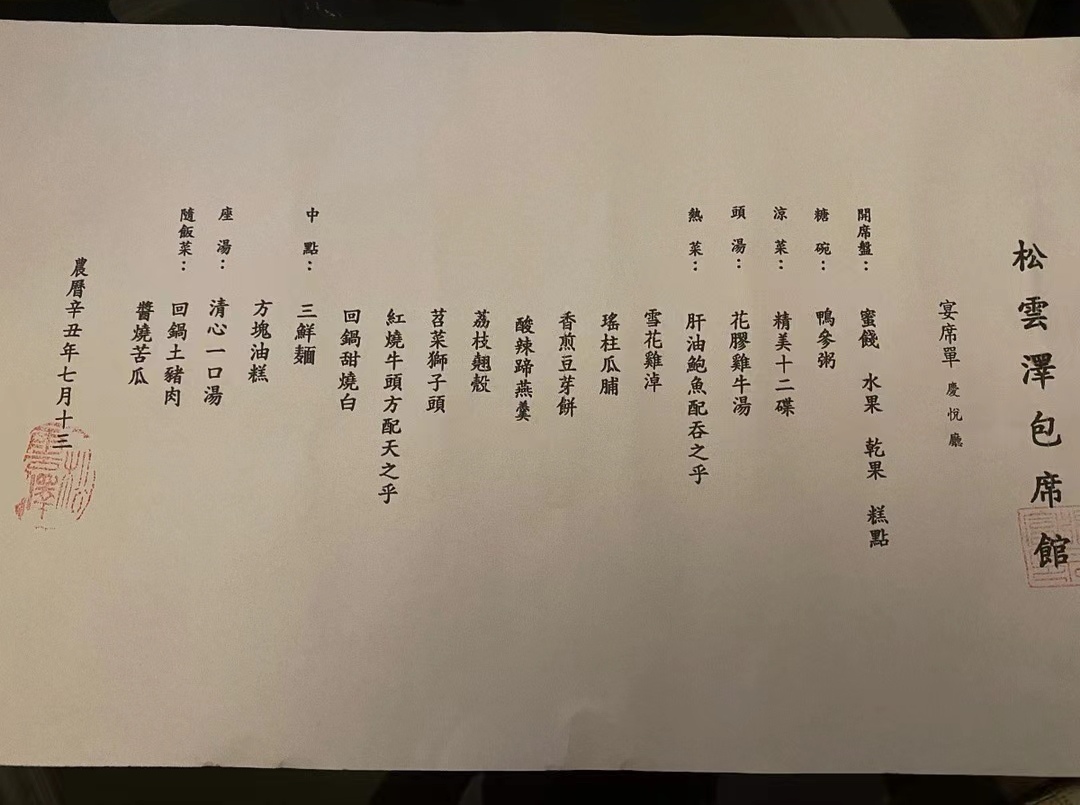 松雲澤包席館
宴席單 慶悅廳
開席盤： 蜜餞 水果 乾果 糕點
糖碗： 鴨參粥
涼菜： 精美十二碟
頭湯： 花膠雞牛湯
熱菜： 肝油鮑魚配吞之乎
雪花雞淖
瑤柱瓜脯
香煎豆芽餅
酸辣蹄燕羹
荔枝翹殼
苕菜獅子頭
紅燒牛頭方配天之乎
回鍋甜燒白
中點： 三鮮麵
方塊油糕
座湯： 清心一口湯
隨飯菜： 回鍋土豬肉
醬燒苦瓜
農曆辛丑年七月十三